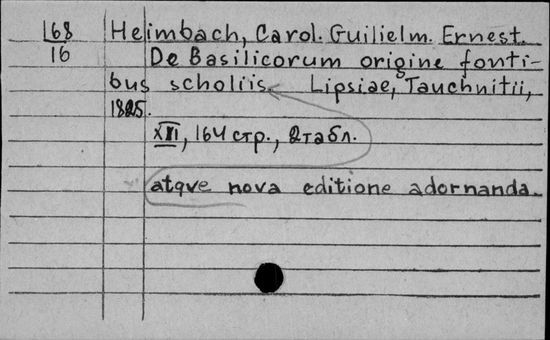 168 Heimbach, Carol. Guilielm. Ernest.
16 De Basilicorum origine fonti-
bus scholiis Lipsiae, Tauchnitii,
1825.
XII, 164 стр., 2 табл.
atqve nova editione adornanda.